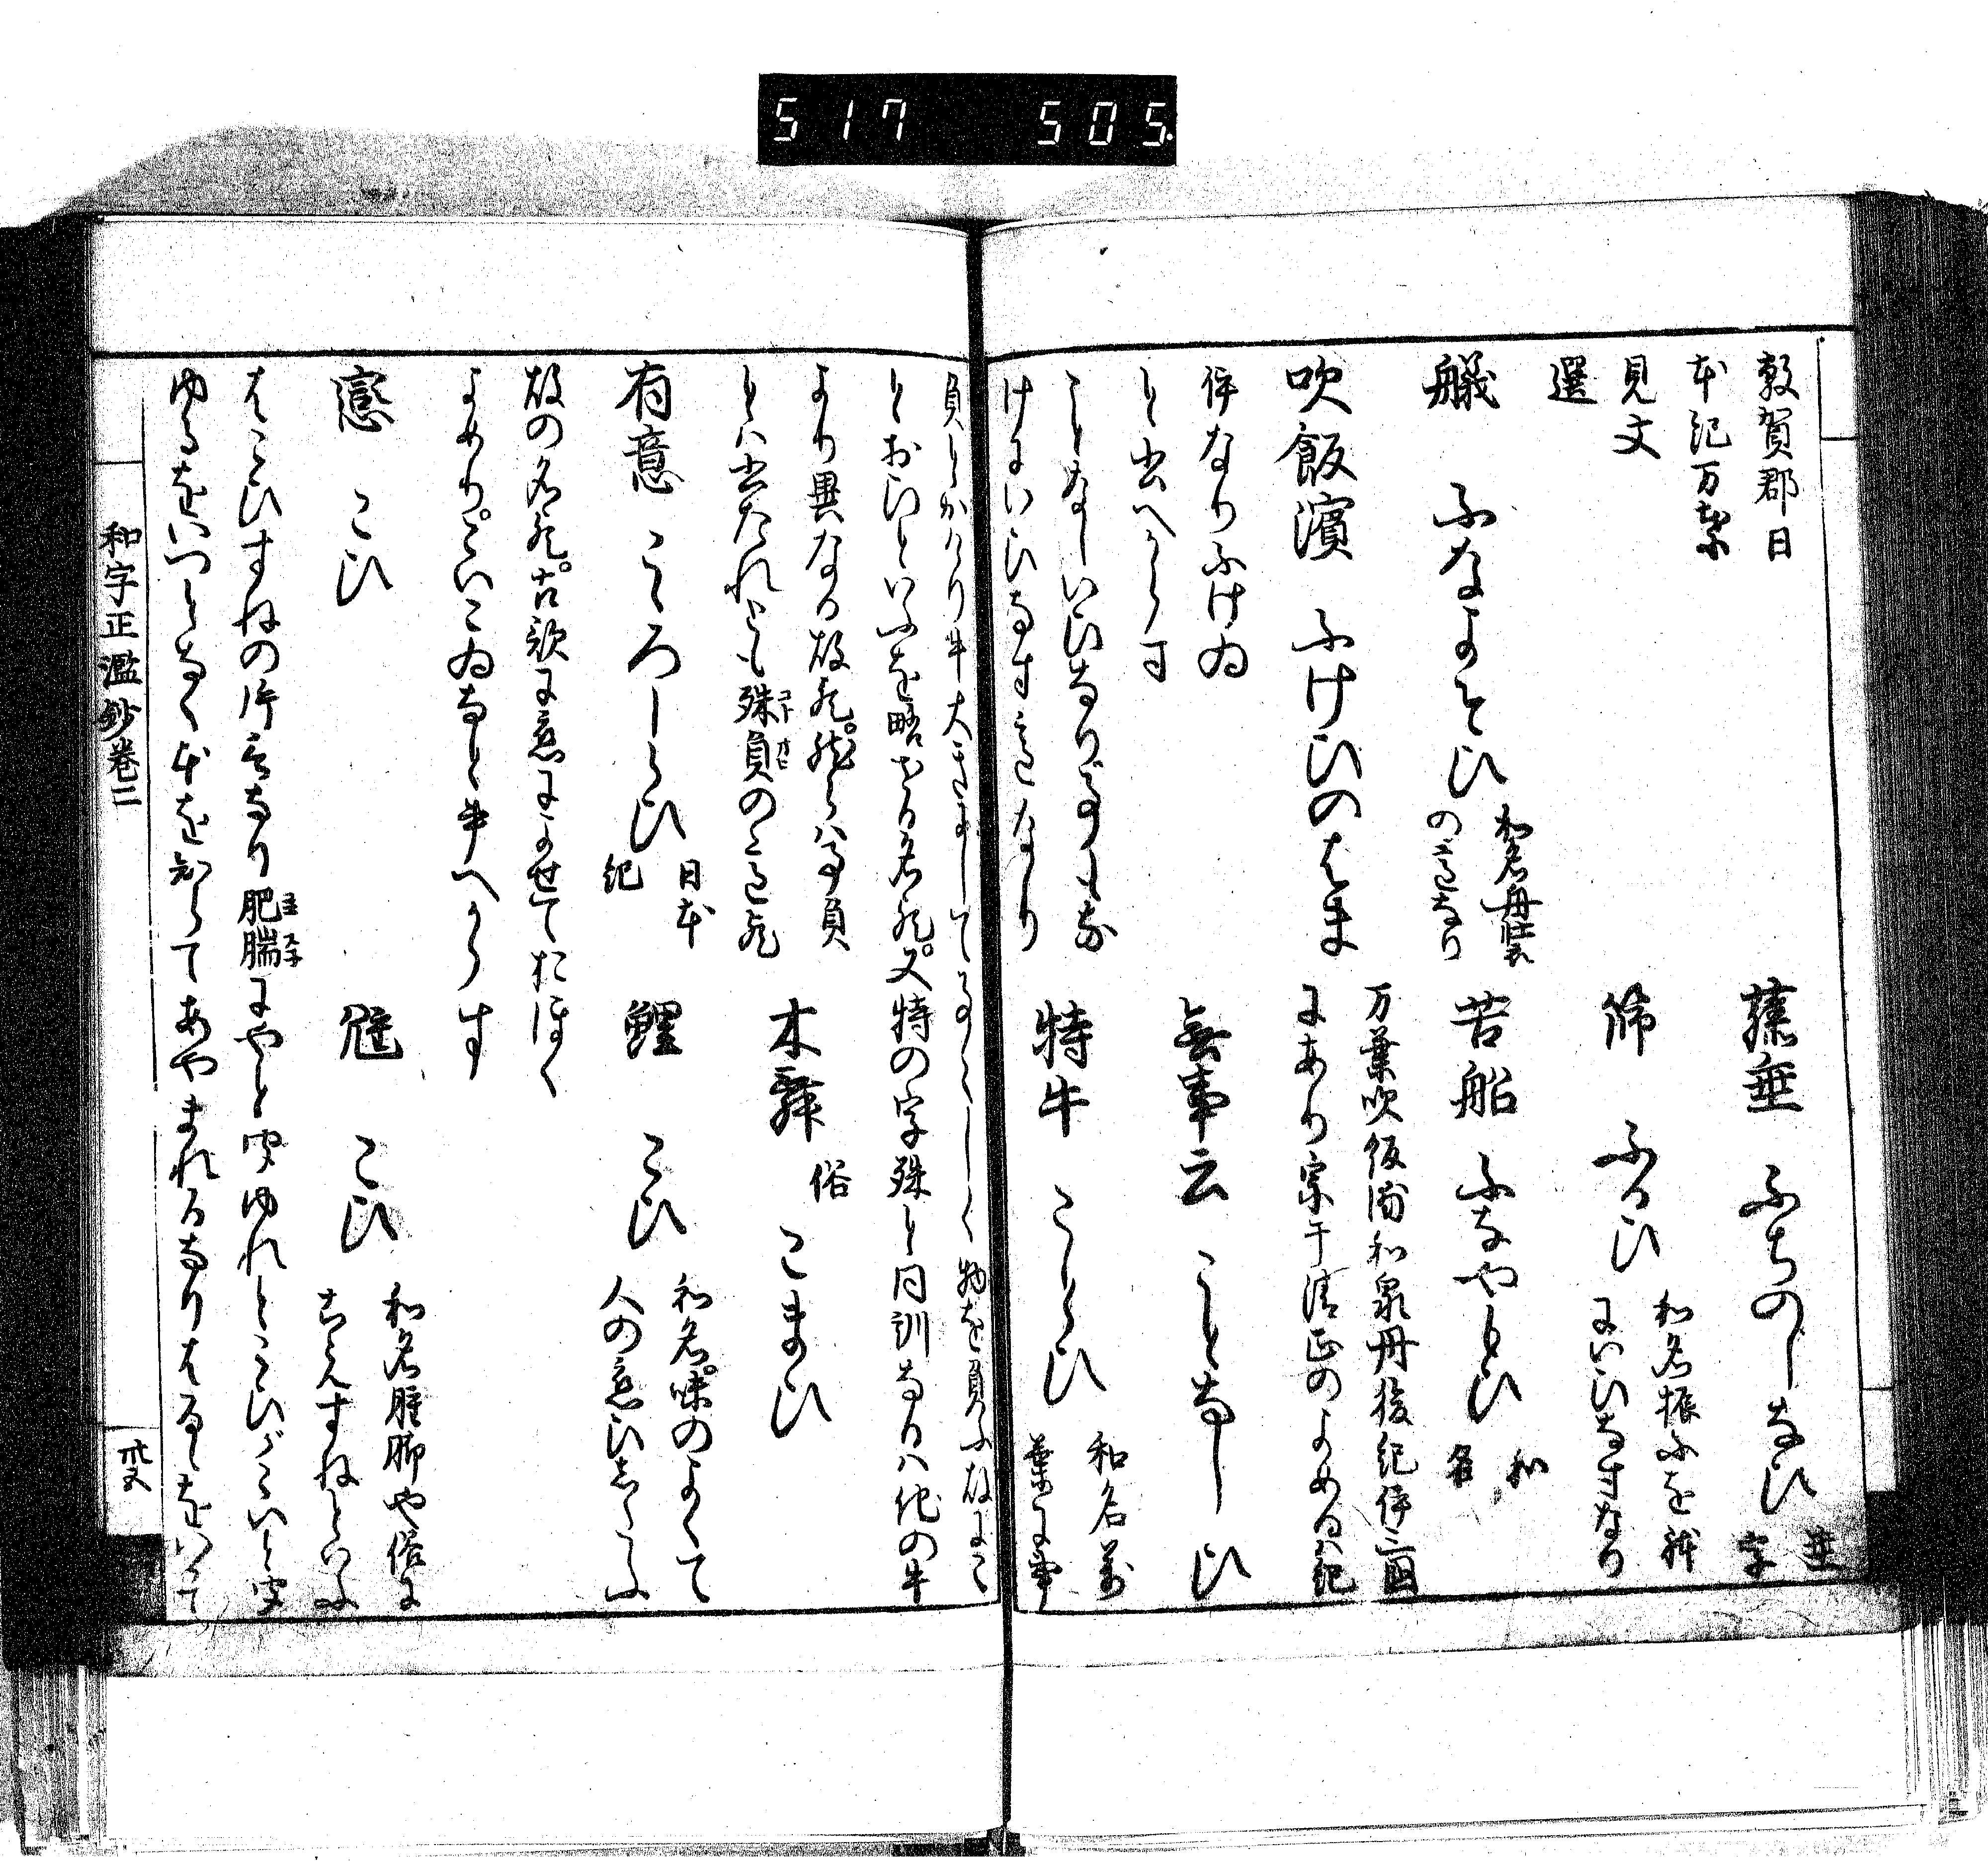 517 505
敦賀郡日
本紀万葉
見文
選
藤垂 ふちのしなひ 垂
字
篩 ふるひ 和名振ふを躰
にいひなすなり
艤 ふなよそひ 和名舟装
の意なり
苫船 ふなやとひ 和
名
吹飯濱 ふけひのはま 万葉吹飯浦和泉丹後紀伊三国
にあり宗于清正のよめるハ紀
伊なりふけゐ
と書へからす
無事云 ことなしひ
ことなしいひなり事もな
けにいひなす意なり
特牛 ことひ 和名萬
葉に事
負とかけり牛大きにして
物を負ふ故にこ
とおひといふを略せる名也又特の字殊と同訓なるハ他の牛
より異なる故也然らハ事負
とハ書たれとも殊負の意也
コト オヒ
木舜 俗 こまひ
有意 こゝろしらひ 日本
紀
鯉 こひ 和名味のよくて
人の恋ひしたふ
故の名也古歌に恋によせておほく
よめりこいこゐなと書へからす
戀 こひ
尰 こひ 和名腫脚や俗に
こえすねといふ
はこひすねの片言なり肥腨にやと聞ゆれとこひがこいと聞
ゆるをいつとなく本を知らてあやまれるなりはるゝをいひて
和字正濫鈔巻二